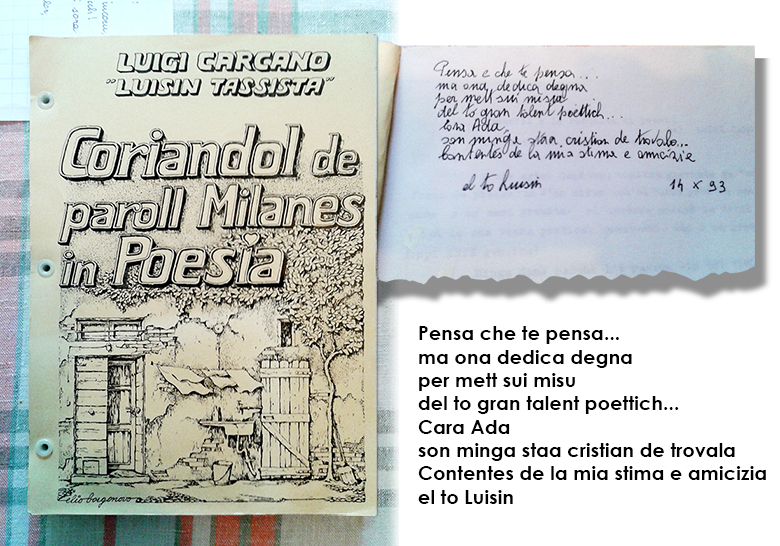 LUIGI CARCANO
"LUISIN TASSISTA"
Coriandol de
paroll Milanes
in Poesia
elio borgonovo
Pensa e che te pensa...
ma ona dedica degna
per mett sui misu
del to gran talent poettich...
Cara Ada
son minga staa cristian de trovala...
Contentes de la mia stima e amicizia
el to Luisin
14 X 93
Pensa che te pensa...
ma ona dedica degna
per mett sui misu
del to gran talent poettich...
Cara Ada
son minga staa cristian de trovala
Contentes de la mia stima e amicizia
el to Luisin